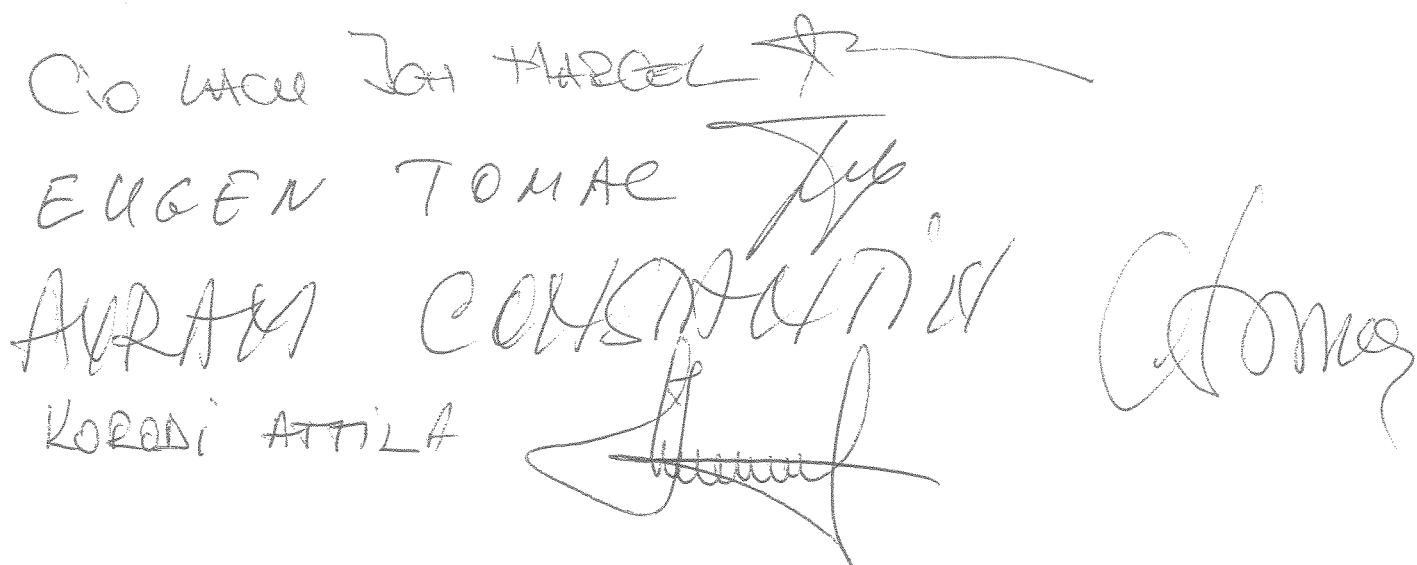 CIOLACU ION MARCEL
EUGEN TOMAC
AVRAM CONSTANTIN
KORODI ATTILA